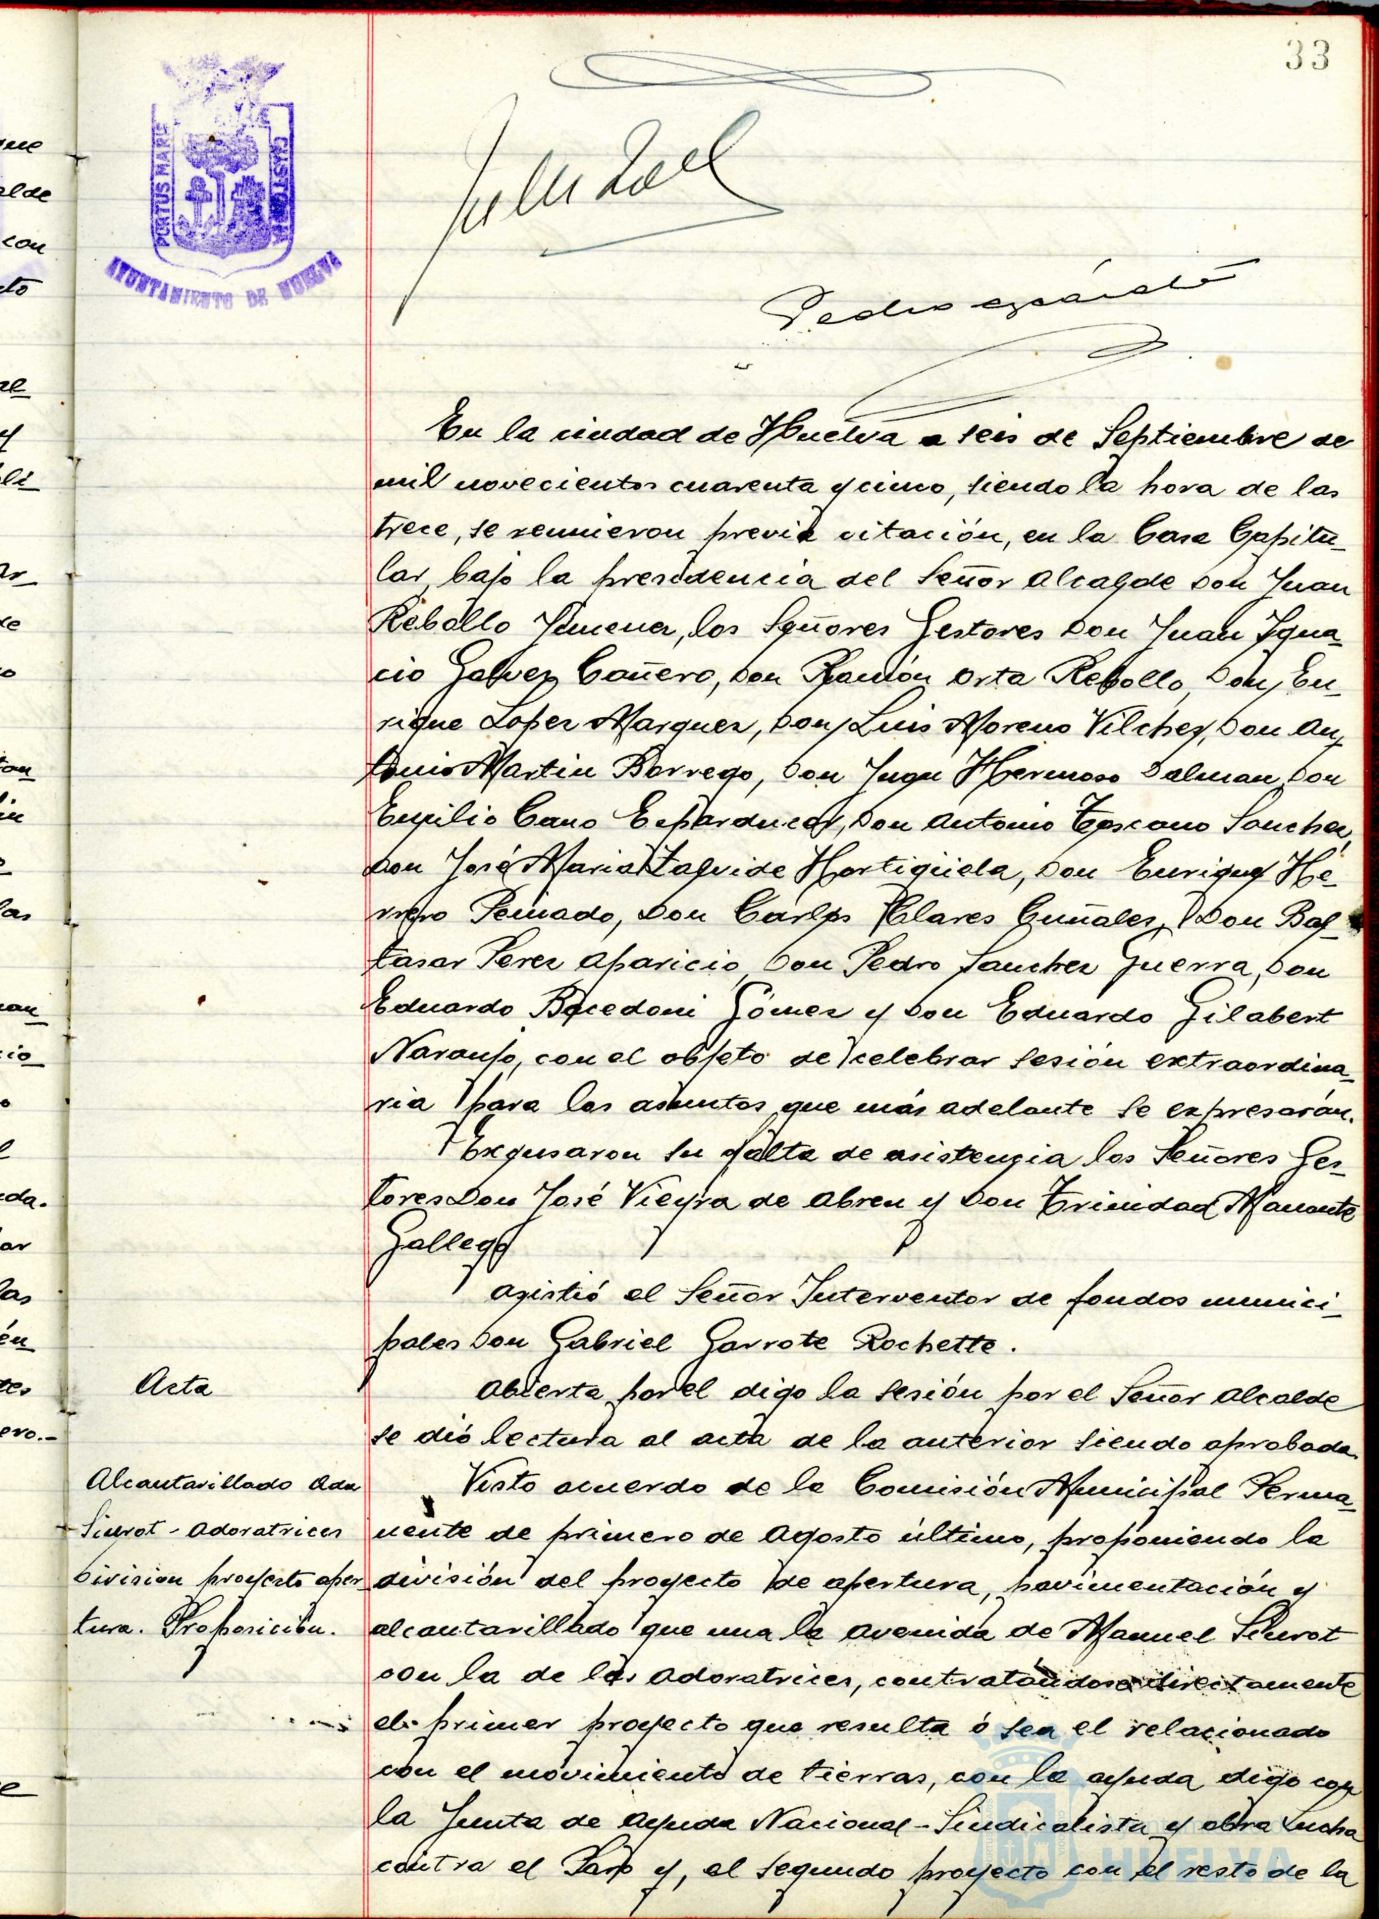 33
PORTUS MARIS
AYUNTAMIENTO DE HUELVA
En la ciudad de Huelva a seis de Septiembre de
mil novecientos cuarenta y cinco, siendo la hora de las
trece, se reunieron previa citación, en la Casa Capitu-
lar, bajo la presidencia del Señor Alcalde Don Juan
Rebollo Jimenez, los Señores Gestores Don Juan Igna-
cio Galvez Cañero, Don Ramón Orta Rebollo, Don En-
rique Lopez Marquez, Don Luis Moreno Vilchez, Don An-
tonio Martin Borrego, Don Juan Hermoso Dalman, Don
Emilio Cano Don Antonio Toscano Sanchez,
Don José Maria Zalvide Hortigüela, Don Enrique He-
rrero Pemado, Don Carlos Clares Don Bal-
tasar Perez Aparicio, Don Pedro Sanchez Guerra, Don
Eduardo Bocedoni Gómez y Don Eduardo Gilabert
Naranjo, con el objeto de celebrar sesión extraordina-
ria para los asuntos que más adelante se expresarán.
Excusaron su falta de asistencia los Señores Ges-
tores Don José Vieyra de Abreu y Don Trinidad Manante
Gallego
Asistió el Señor Interventor de fondos munici-
pales Don Gabriel Garrote Rochette.
Acta
Abierta por el digo la sesión por el Señor Alcalde
se dió lectura al acta de la anterior siendo aprobada.
Alcantarillado Ada
Siurot - Adoratrices
Division proyecto aper
tura. Proposición.
Visto acuerdo de la Comisión Municipal Perma-
nente de primero de Agosto último, proponiendo la
división del proyecto de apertura, pavimentación y
alcantarillado que una la avenida de Manuel Siurot
con la de las Adoratrices, contratándose directamente
el primer proyecto que resulta ó sea el relacionado
con el movimiento de tierras, con la ayuda digo con
la Junta de Ayuda Nacional-Sindicalista y obra Lucha
contra el Paro y, el segundo proyecto con el resto de la
HUELVA